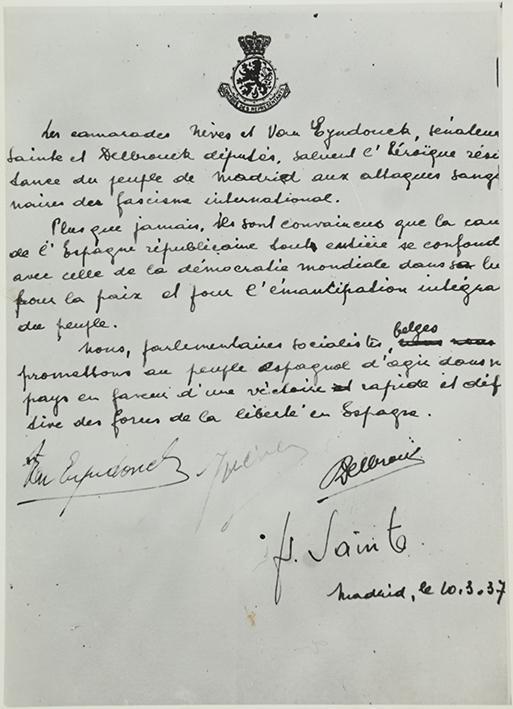 CHAMBRE DES REPRÉSENTANTS
Les camarades Nèves et Van Eyndonck, sénateur
Sainte et Delbrouck députés, saluent l'héroïque rési
tance du peuple de Madrid aux attaques sangi
naires des fascisme international.
Plus que jamais, ils sont convaincus que la cau
de l'Espagne républicaine toute entière se confond
avec celle de la démocratie mondiale dans sa lu
pour la paix et pour l'émancipation intégra
du peuple.
Nous, parlementaires socialistes belges
promettons au peuple espagnol d'agir dans n
pays en faveur d'une victoire et rapide et défi
tive des forces de la liberté en Espagne.
Van Eyndonck Nèves Delbrouck
Sainte
Madrid, le 10.3.37